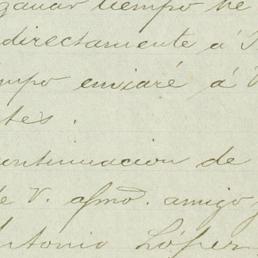 ganar tiempo he
directamente á
tiempo enviaré á V
tes.
continuacion de
de V. afmo. amigo
Antonio López